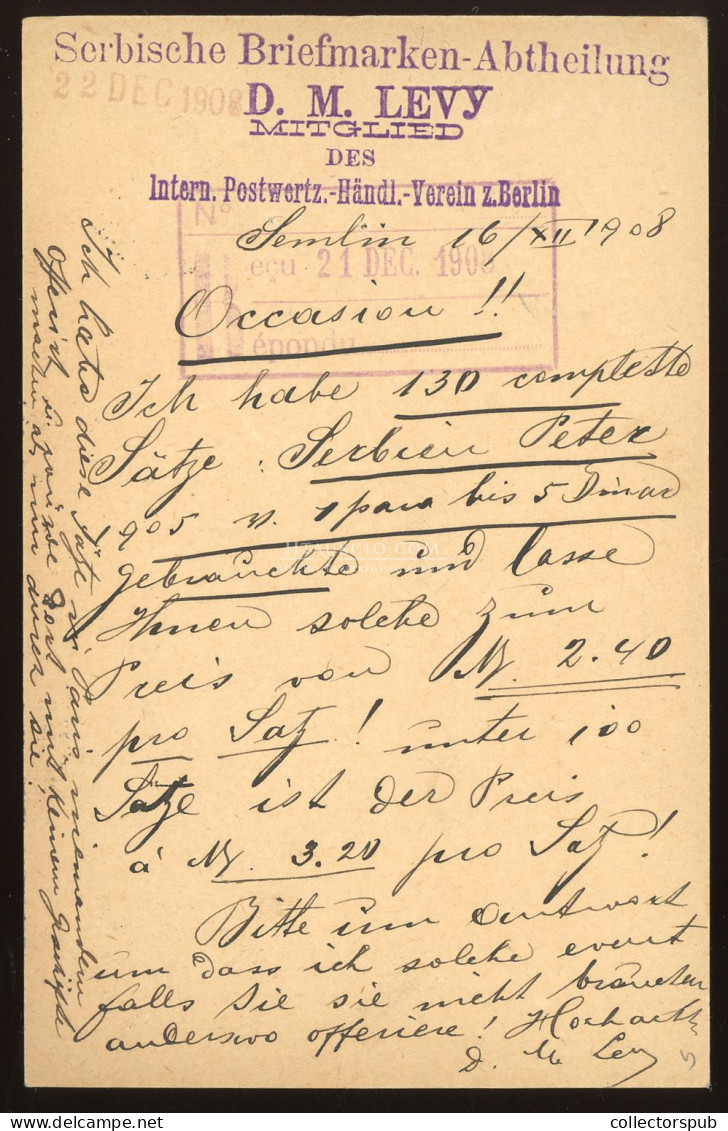 Serbische Briefmarken-Abtheilung
22 DEC 1908
D. M. LEVY
MITGLIED
DES
Intern. Postwertz.-Händl.-Verein z.Berlin
No
Semlin 16/XII 1908
eçu 21 DEC. 190
Occasion!!
épondu
Ich habe 130 complette
Sätze: Serbien Peter
1905 v. 1 para bis 5 Dinar
gebrauchte und lasse
Ihnen solche zum
Preis von M. 2.40
pro Satz! unter 100
Sätze ist der Preis
á M. 3.20 pro Satz!
Bitte um Antwort
um dass ich solche event
falls Sie sie nicht brauchen
anderswo offeriere! Hochacht
D. M. Levy
Ich habe diese Sätze in Paris niemandem
offerirt u. würde dort mit keinem Geschäfte
machen als nur durch Sie!
collectorspub